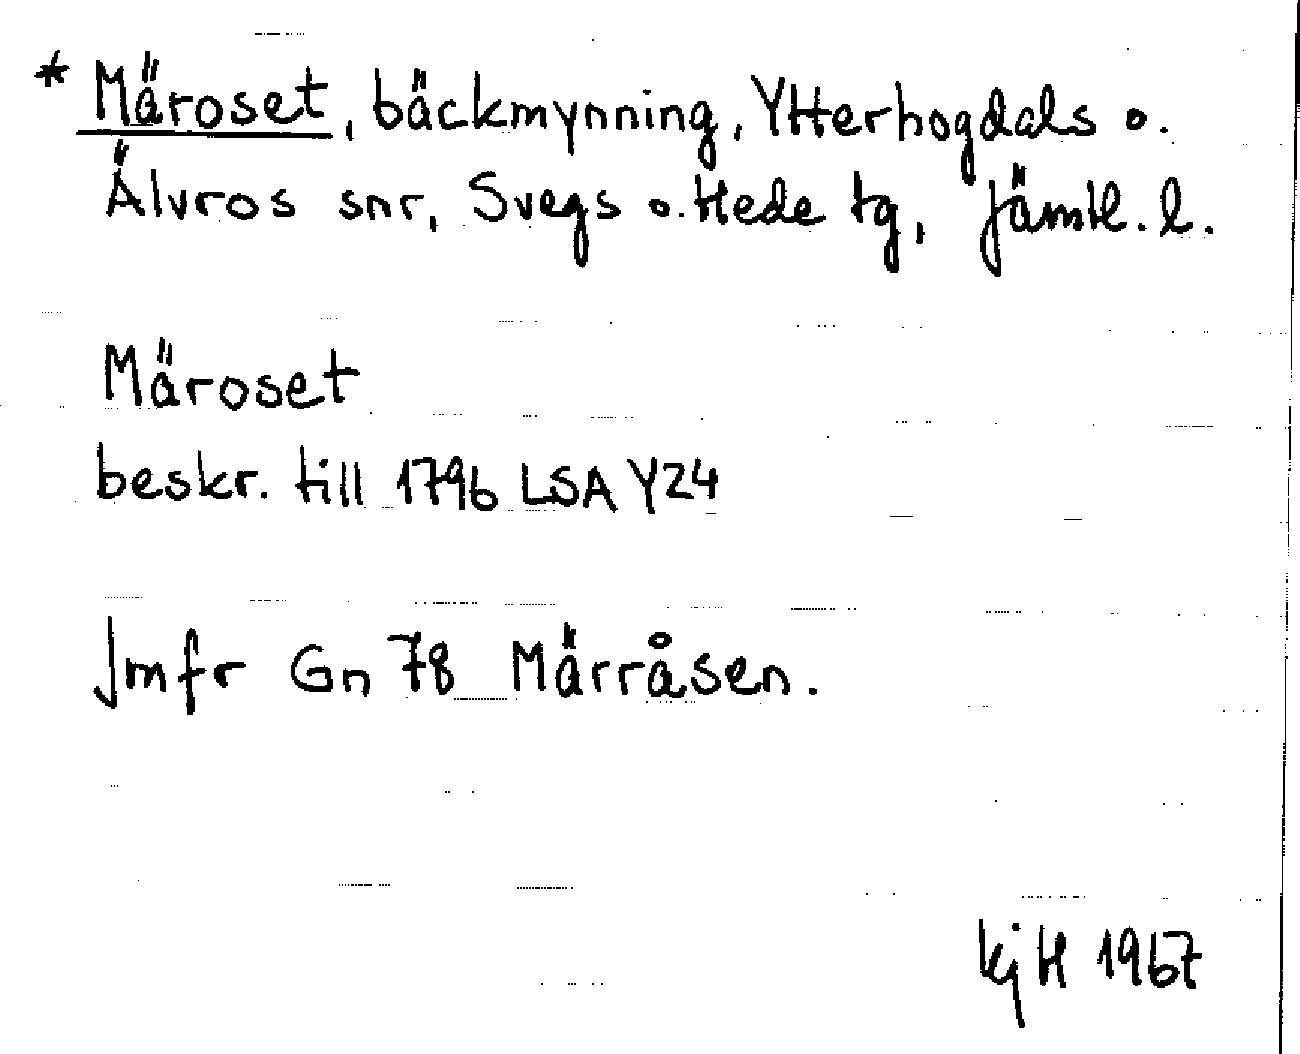 * Märoset, bäckmynning, Ytterhogdals o.
Älvros snr, Svegs o. Hede tg, Jämtl. l.
Märoset
beskr. till 1796 LSA Y24
Jmfr Gn 78 Märråsen.
kj H 1967